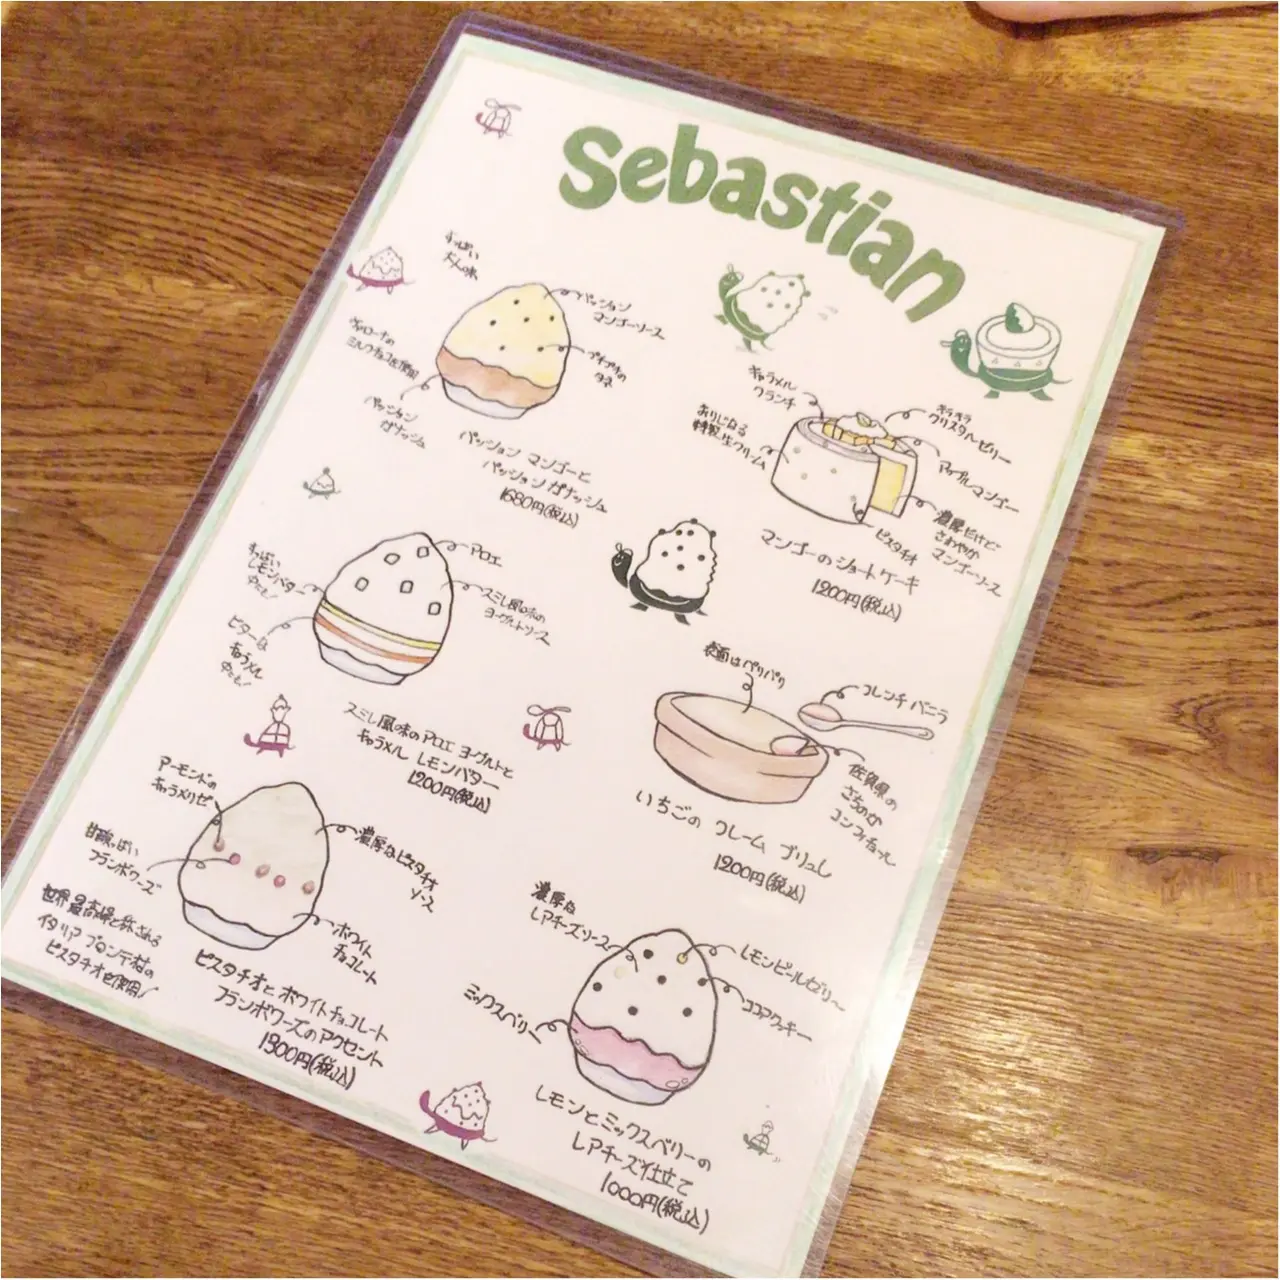 Sebastian
すっぱい
大人の味
パッション
マンゴーソース
プチプチの
タネ
ヴァローナの
ミルクチョコを使用
パッション
ガナッシュ
パッション マンゴーと
パッション ガナッシュ
1680円(税込)
キャラメル
クランチ
おりじなる
特製生クリーム
キラキラ
クリスタルゼリー
アップルマンゴー
濃厚だけど
さわやか
マンゴーソース
ピスタチオ
マンゴーのショートケーキ
1200円(税込)
すっぱい
レモンバター
中にも!
アロエ
スミレ風味の
ヨーグルトソース
ビターな
キャラメル
中にも!
スミレ風味のアロエ ヨーグルトと
キャラメル レモンバター
1200円(税込)
表面はパリパリ
フレンチ バニラ
佐賀県の
さちのか
コンフィチュール
いちごの クレーム ブリュレ
1200円(税込)
アーモンドの
キャラメリゼ
甘酸っぱい
フランボワーズ
濃厚なピスタチオ
ソース
ホワイト
チョコレート
世界最高峰と称される
イタリア ブロンテ村の
ピスタチオを使用!
ピスタチオと ホワイトチョコレート
フランボワーズのアクセント
1300円(税込)
濃厚な
レアチーズソース
レモンピールゼリー
ココアクッキー
ミックスベリー
レモンとミックスベリーの
レアチーズ仕立て
1000円(税込)